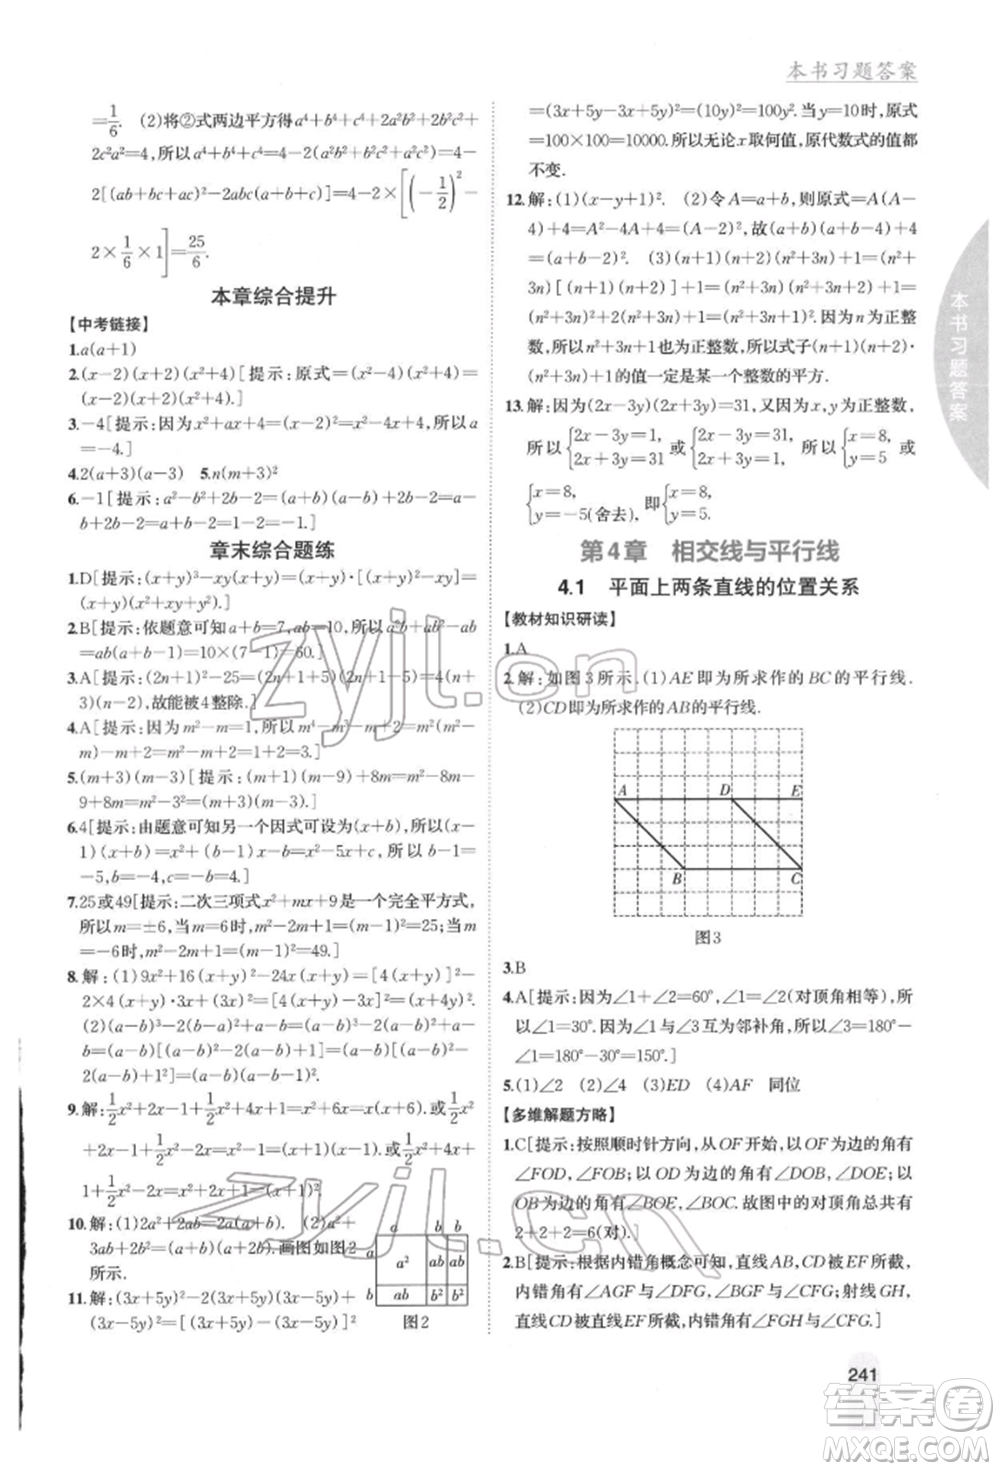 本书习题答案
=1/6. (2)将②式两边平方得a⁴+b⁴+c⁴+2a²b²+2b²c²+
2c²a²=4,所以a⁴+b⁴+c⁴=4-2(a²b²+b²c²+a²c²)=4-
2[(ab+bc+ac)²-2abc(a+b+c)]=4-2×[(-1/2)²-
2×1/6×1]=25/6.
本章综合提升
【中考链接】
1.a(a+1)
2.(x-2)(x+2)(x²+2)[提示:原式=(x²-4)(x²+2)=
(x-2)(x+2)(x²+2).]
3.-4[提示:因为x²+ax+4=(x-2)²=x²-4x+4,所以a
=-4.]
4.2(a+3)(a-3) 5.n(m+3)²
6.-1[提示:a²-b²+2b-2=(a+b)(a-b)+2b-2=a-
b+2b-2=a+b-2=1-2=-1.]
章末综合题练
1.D[提示:(x+y)³-xy(x+y)=(x+y)[(x+y)²-xy]=
(x+y)(x²+xy+y²).]
2.B[提示:依题意可知a+b=7,ab=10,所以a²b+ab²
=ab(a+b)=10×7=70.]
4.A[提示:因为m²-m=1,所以m⁴-
5.(m+3)(m-3)[提示:(m+1)(m-9)+8m=m²-9m+m-9
+8m=m²-9=(m+3)(m-3).]
6.4[提示:由题意可知另一个因式可设为(x+b),所以(x-
1)(x+b)=x²+(b-1)x-b=x²-5x+c,所以b-1=
-5,-b=c,所以b=-4,c=4.]
7.25或49[提示:二次三项式x²+mx+9是一个完全平方式,
所以m=±6,当m=6时,m²-12m+36=(m-6)²
8.解:(1)9x²+16(x+y)²-24x(x+y)=[4(x+y)]²-
2×4(x+y)·3x+(3x)²=[4(x+y)-3x]²=(x+4y)².
(2)(a-b)³-2(a-b)²+(a-b)=(a-b)·
9.解:1/2x²+2x-1+1/2x²+4x+1=x²+6x=x(x+6).或1/2x²
+2x-1+1/2x²-2x=x²-1=(x+1)(x-1).或1/2x²+4x
+1+1/2x²-2x=x²+2x+1=(x+1)².
10.解:(1)2a²+2ab=2a(a+b). (2)a²+
3ab+2b²=(a+b)(a+2b).画图如图2
所示.
a b b
a a² ab ab
b ab b² b²
图2
11.解:(3x+5y)²-2(3x+5y)(3x-5y)+
(3x-5y)²=[(3x+5y)-(3x-5y)]²
=(3x+5y-3x+5y)²=(10y)²=100y². 当y=10时,原式
=100×100=10000. 所以无论x取何值,原代数式的值都
不变.
12.解:(1)(x-y+1)². (2)令A=a+b,则原式=A(A-
4)+4=A²-4A+4=(A-2)²,故(a+b)(a+b-4)+4
=(a+b-2)². (3)(n+1)(n+2)(n²+3n)+1=(n²+
3n)[(n+1)(n+2)]+1=(n²+3n)(n²+3n+2)+1=
(n²+3n)²+2(n²+3n)+1=(n²+3n+1)². 因为n为正整
数,所以n²+3n+1也为正整数,所以式子(n+1)(n+2)·
(n²+3n)+1的值一定是某一个整数的平方.
13.解:因为(2x-3y)(2x+3y)=31,又因为x,y为正整数,
所以{2x-3y=1, 2x+3y=31 或{2x-3y=31, 2x+3y=1. 所以{x=8, y=5 或
{x=8, y=-5(舍去). 即{x=8, y=5.
第4章 相交线与平行线
4.1 平面上两条直线的位置关系
【教材知识研读】
1.A
2.解:如图3所示.(1)AE即为所求作的BC的平行线.
(2)CD即为所求作的AB的平行线.
A D E
B C
图3
3.B
4.A[提示:因为∠1+∠2=60°,∠1=∠2(对顶角相等),所
以∠1=30°. 因为∠1与∠3互为邻补角,所以∠3=180°-
∠1=180°-30°=150°.]
5.(1)∠2 (2)∠4 (3)ED (4)AF 同位
【多维解题方略】
1.C[提示:按照顺时针方向,从OF开始,以OF为边的角有
∠FOD,∠FOC;以OD为边的角有∠DOA,∠DOE;以
OB为边的角有∠BOE,∠BOC. 故图中的对顶角总共有
2+2+2=6(对).]
2.B[提示:根据内错角概念可知,直线AB,CD被EF所截,
内错角有∠AGF与∠DFG,∠BGF与∠CFG;
直线CD被直线EF所截,内错角有∠FGH与∠CFG.]
本书习题答案
241
zyjl.cn
zyjl.cn
答案圈
MXQE.COM